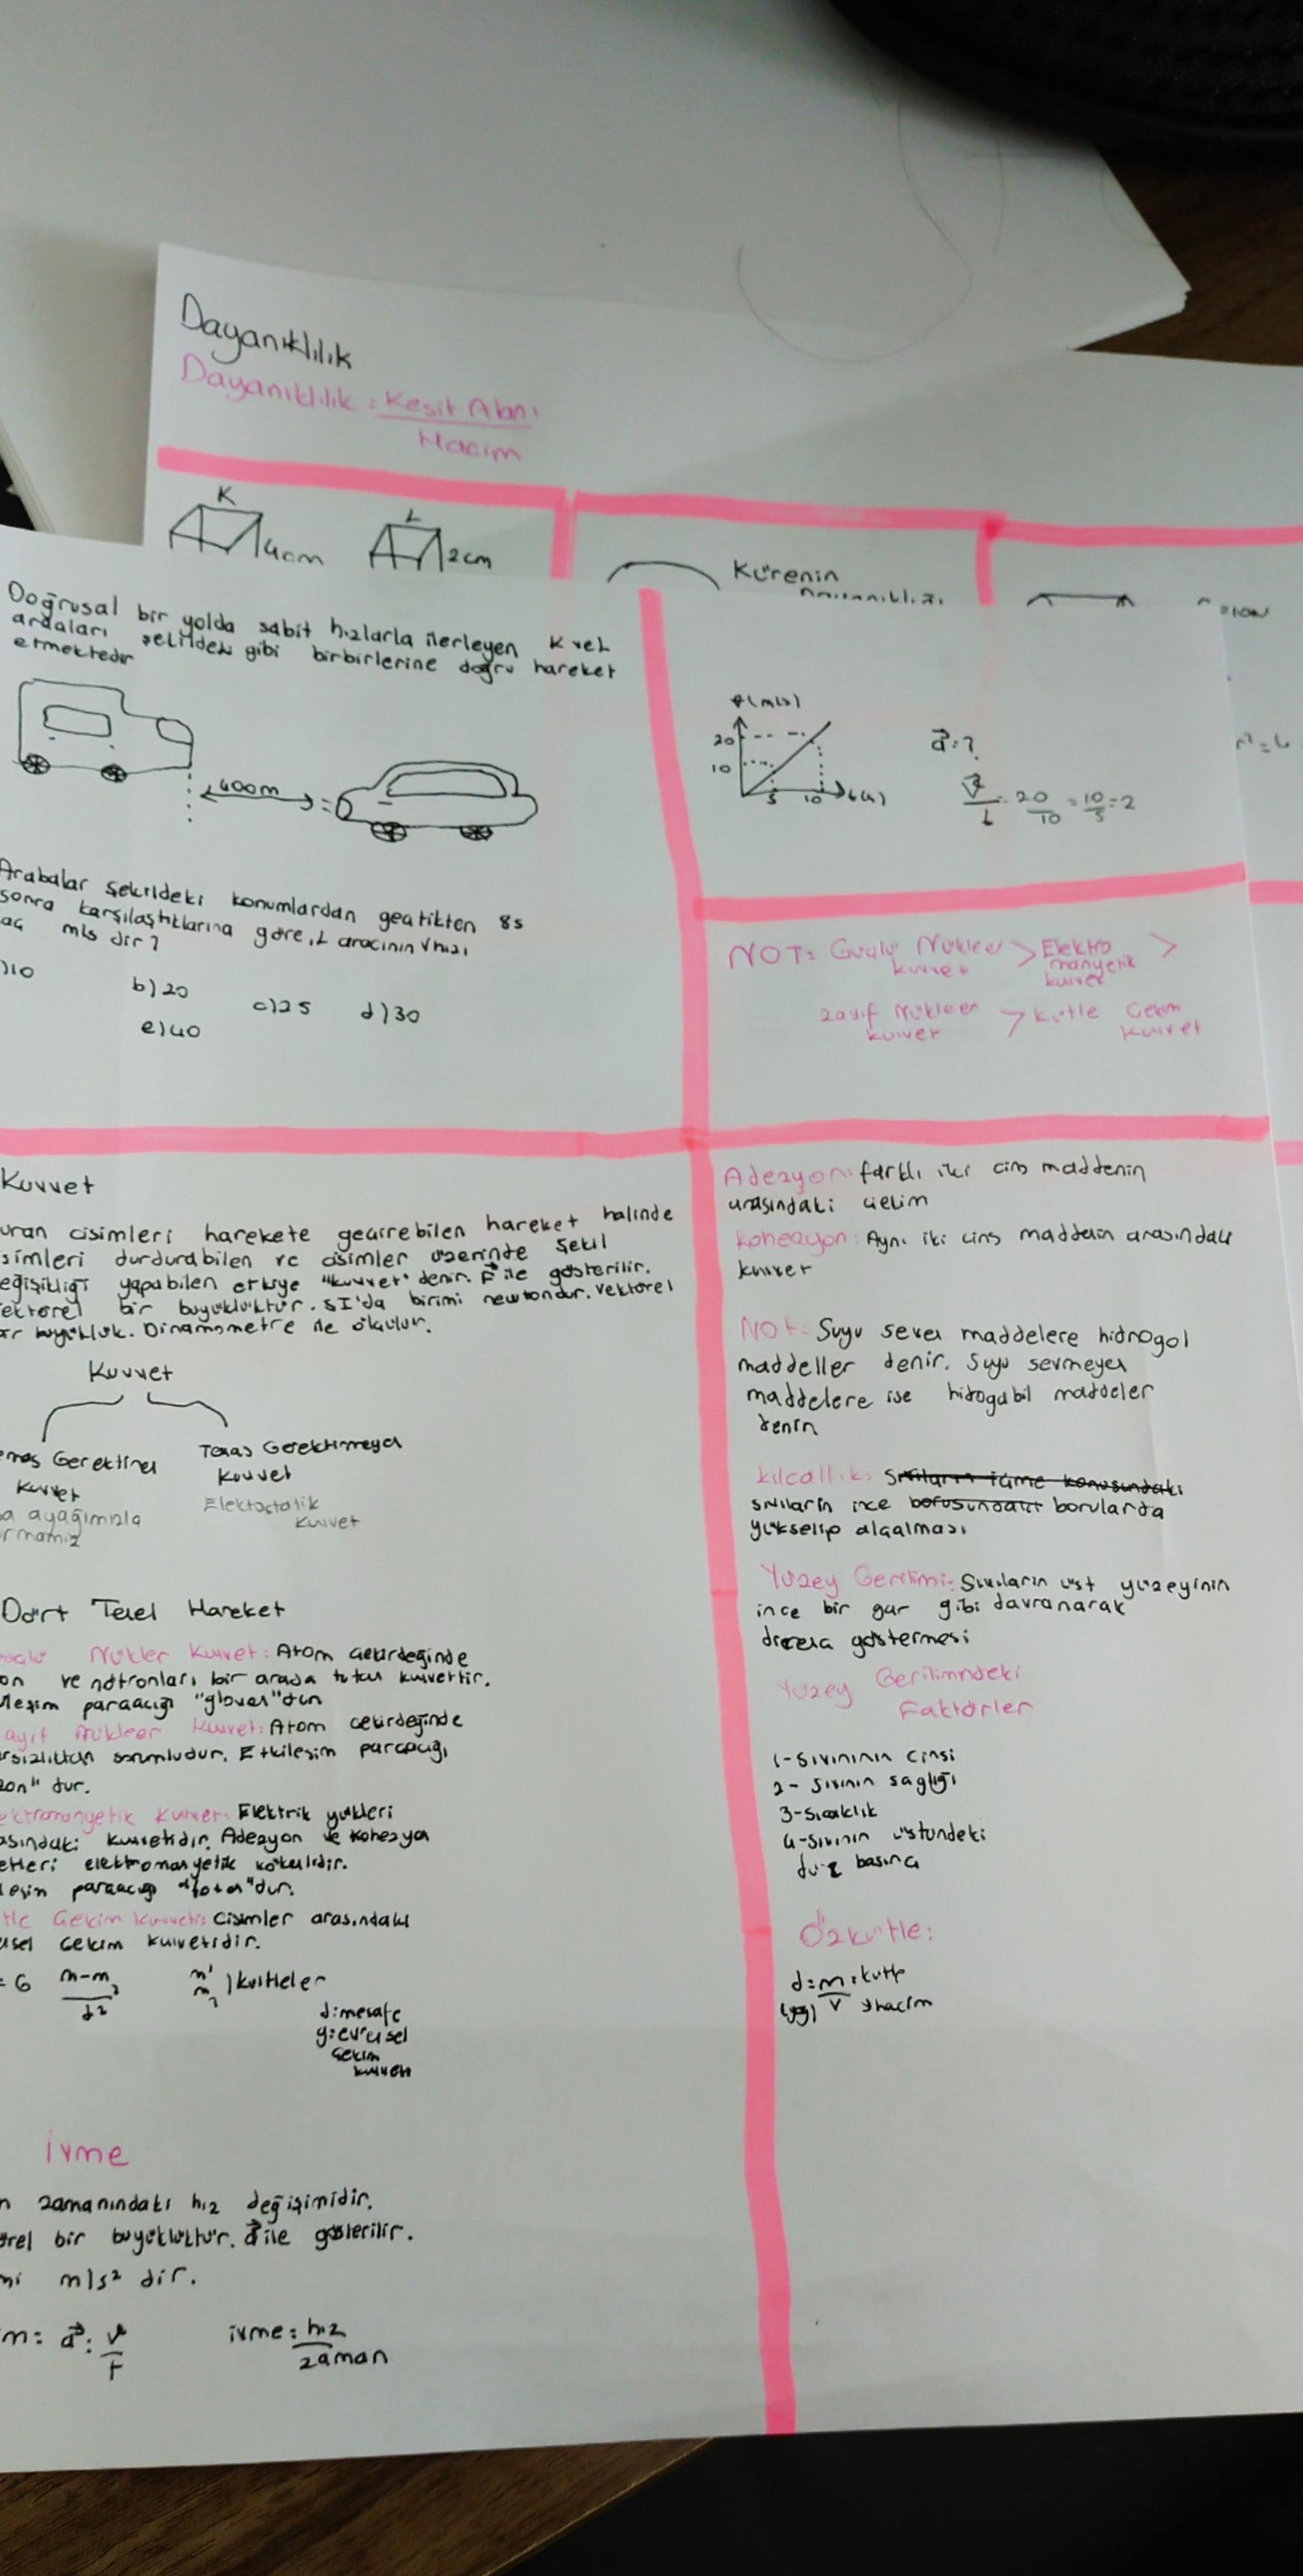 Dayanıklılık
Dayanıklılık = Kesit Alanı
Hacim
K
4cm
L
2cm
Kürenin
Doğrusal bir yolda sabit hızlarla ilerleyen K ve L
şekildeki gibi birbirlerine doğru hareket
etmektedir
400m
Arabalar şekildeki konumlardan geçtikten 8s
sonra karşılaştıklarına göre, L aracının hızı
m/s dir?
)10
b)20
c)25
d)30
e)40
(m/s)
20
10
5
10
a:?
20/10 = 10/5 = 2
NOT: Güçlü Nükleer kuvvet > Elektro manyetik kuvvet >
zayıf Nükleer kuvvet > kütle Çekim kuvvet
Kuvvet
uran cisimleri harekete geçirebilen hareket halinde
simleri durdurabilen ve cisimler üzerinde şekil
eğişikliği yapabilen etkiye "kuvvet" denir. F ile gösterilir.
ektörel bir büyüklüktür. SI'da birimi newtondur. Vektörel
büyüklük. Dinamometre ile ölçülür.
Kuvvet
Gerektiren
Kuvvet
a ayağımızla
Temas Gerektirmeyen
Kuvvet
Elektostatik
kuvvet
Dört Temel Hareket
Nükler Kuvvet: Atom çekirdeğinde
on ve nötronları bir arada tutan kuvvettir.
leşim parçacığı "gluon"dur
ayıf nükleer Kuvvet: Atom çekirdeğinde
sorumludur. Etkileşim parçacığı
zon" dur.
ektromanyetik kuvvet: Elektrik yükleri
asındaki kuvvetidir. Adezyon ve kohezyon
etleri elektromanyetik kökenlidir.
leşim parçacığı "foton"dur.
tle Çekim kuvveti: Cisimler arasındaki
sel çekim kuvvetidir.
= G m-m2
d²
kütleler
d:mesafe
g:evrensel
çekim
kuvveti
İvme
n zamanındaki hız değişimidir.
örel bir büyüklüktür. a ile gösterilir.
mi m/s² dir.
m: a: v
t
ivme: hız
zaman
Adezyon: farklı iki cins maddenin
arasındaki çekim
Kohezyon: Aynı iki cins maddenin arasındaki
kuvvet
NOT: Suyu seven maddelere hidrogol
maddeller denir. Suyu sevmeyen
maddelere ise hidrogabil maddeler
denir
kılcallık: Sıvıların içme konusundaki
sıvıların ince borusundaki borularda
yükselip alçalması
Yüzey Gerilimi: Sıvıların üst yüzeyinin
ince bir gar gibi davranarak
direnç göstermesi
Yüzey Gerilimindeki
Faktörler
1-Sıvınının cinsi
2- Sıvının saglığı
3-Sıcaklık
4-sıvının üstündeki
basınç
Özkütle:
d = m : kütle
v hacim